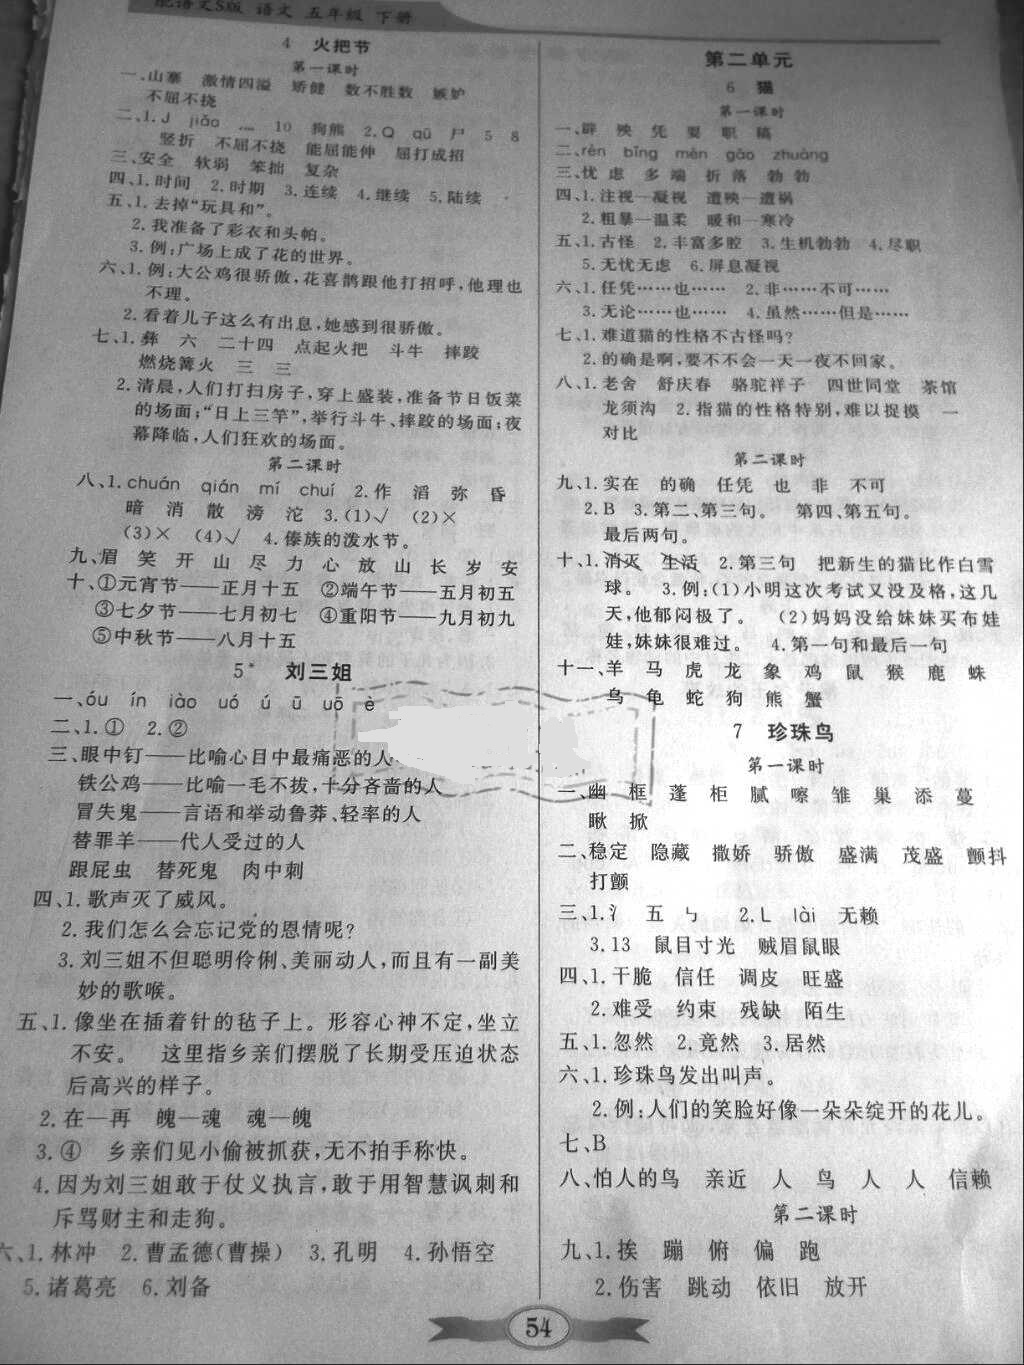 配语文S版 语文 五年级 下册
4 火把节
第一课时
一、山寨 激情四溢 矫健 数不胜数 嫉妒
不屈不挠
二、1.J jiǎo 灬 10 狗熊 2.Q qū 尸 5 8
竖折 不屈不挠 能屈能伸 屈打成招
三、安全 软弱 笨拙 复杂
四、1.时间 2.时期 3.连续 4.继续 5.陆续
五、1.去掉“玩具和”。
2.我准备了彩衣和头帕。
3.例:广场上成了花的世界。
六、1.例:大公鸡很骄傲,花喜鹊跟他打招呼,他理也
不理。
2.看着儿子这么有出息,她感到很骄傲。
七、1.彝 六 二十四 点起火把 斗牛 摔跤
燃烧篝火 三 三
2.清晨,人们打扫房子,穿上盛装,准备节日饭菜
的场面;“日上三竿”,举行斗牛、摔跤的场面;夜
幕降临,人们狂欢的场面。
第二课时
八、1.chuán qián mí chuí 2.作 滔 弥 昏
暗 消 散 滂 沱 3.(1)√ (2)×
(3)× (4)√ 4.傣族的泼水节。
九、眉 笑 开 山 尽 力 心 放 山 长 岁 安
十、①元宵节——正月十五 ②端午节——五月初五
③七夕节——七月初七 ④重阳节——九月初九
⑤中秋节——八月十五
5* 刘三姐
一、óu ín iào uó ú ū uō è
二、1.① 2.②
三、眼中钉——比喻心目中最痛恶的人
铁公鸡——比喻一毛不拔,十分吝啬的人
冒失鬼——言语和举动鲁莽、轻率的人
替罪羊——代人受过的人
跟屁虫 替死鬼 肉中刺
四、1.歌声灭了威风。
2.我们怎么会忘记党的恩情呢?
3.刘三姐不但聪明伶俐、美丽动人,而且有一副美
妙的歌喉。
五、1.像坐在插着针的毡子上。形容心神不定,坐立
不安。 这里指乡亲们摆脱了长期受压迫状态
后高兴的样子。
2.在—再 魄—魂 魂—魄
3.④ 乡亲们见小偷被抓获,无不拍手称快。
4.因为刘三姐敢于仗义执言,敢于用智慧讽刺和
斥骂财主和走狗。
六、1.林冲 2.曹孟德(曹操) 3.孔明 4.孙悟空
5.诸葛亮 6.刘备
第二单元
6 猫
第一课时
一、辟 殃 凭 耍 职 稿
二、rèn bǐng mèn gǎo zhuàng
三、忧 虑 多 端 折 落 勃 勃
四、1.注视—凝视 遭殃—遭祸
2.粗暴—温柔 暖和—寒冷
五、1.古怪 2.丰富多腔 3.生机勃勃 4.尽职
5.无忧无虑 6.屏息凝视
六、1.任凭……也…… 2.非……不可……
3.无论…也…… 4.虽然……但是……
七、1.难道猫的性格不古怪吗?
2.的确是啊,要不不会一天一夜不回家。
八、1.老舍 舒庆春 骆驼祥子 四世同堂 茶馆
龙须沟 2.指猫的性格特别,难以捉摸 一
对比
第二课时
九、1.实在 的确 任凭 也 非 不可
2.B 3.第二、第三句。 第四、第五句。
最后两句。
十、1.消灭 生活 2.第三句 把新生的猫比作白雪
球。 3.例:(1)小明这次考试又没及格,这几
天,他郁闷极了。 (2)妈妈没给妹妹买布娃
娃,妹妹很难过。 4.第一句和最后一句
十一、羊 马 虎 龙 象 鸡 鼠 猴 鹿 蛛
鸟 龟 蛇 狗 熊 蟹
7 珍珠鸟
第一课时
一、幽 框 蓬 柜 腻 嚓 雏 巢 添 蔓
瞅 掀
二、稳定 隐藏 撒娇 骄傲 盛满 茂盛 颤抖
打颤
三、1.氵 五 ㄣ 2.L lài 无赖
3.13 鼠目寸光 贼眉鼠眼
四、1.干脆 信任 调皮 旺盛
2.难受 约束 残缺 陌生
五、1.忽然 2.竟然 3.居然
六、1.珍珠鸟发出叫声。
2.例:人们的笑脸好像一朵朵绽开的花儿。
七、B
八、怕人的鸟 亲近 人 鸟 人 人 信赖
第二课时
九、1.挨 蹦 俯 偏 跑
2.伤害 跳动 依旧 放开
54